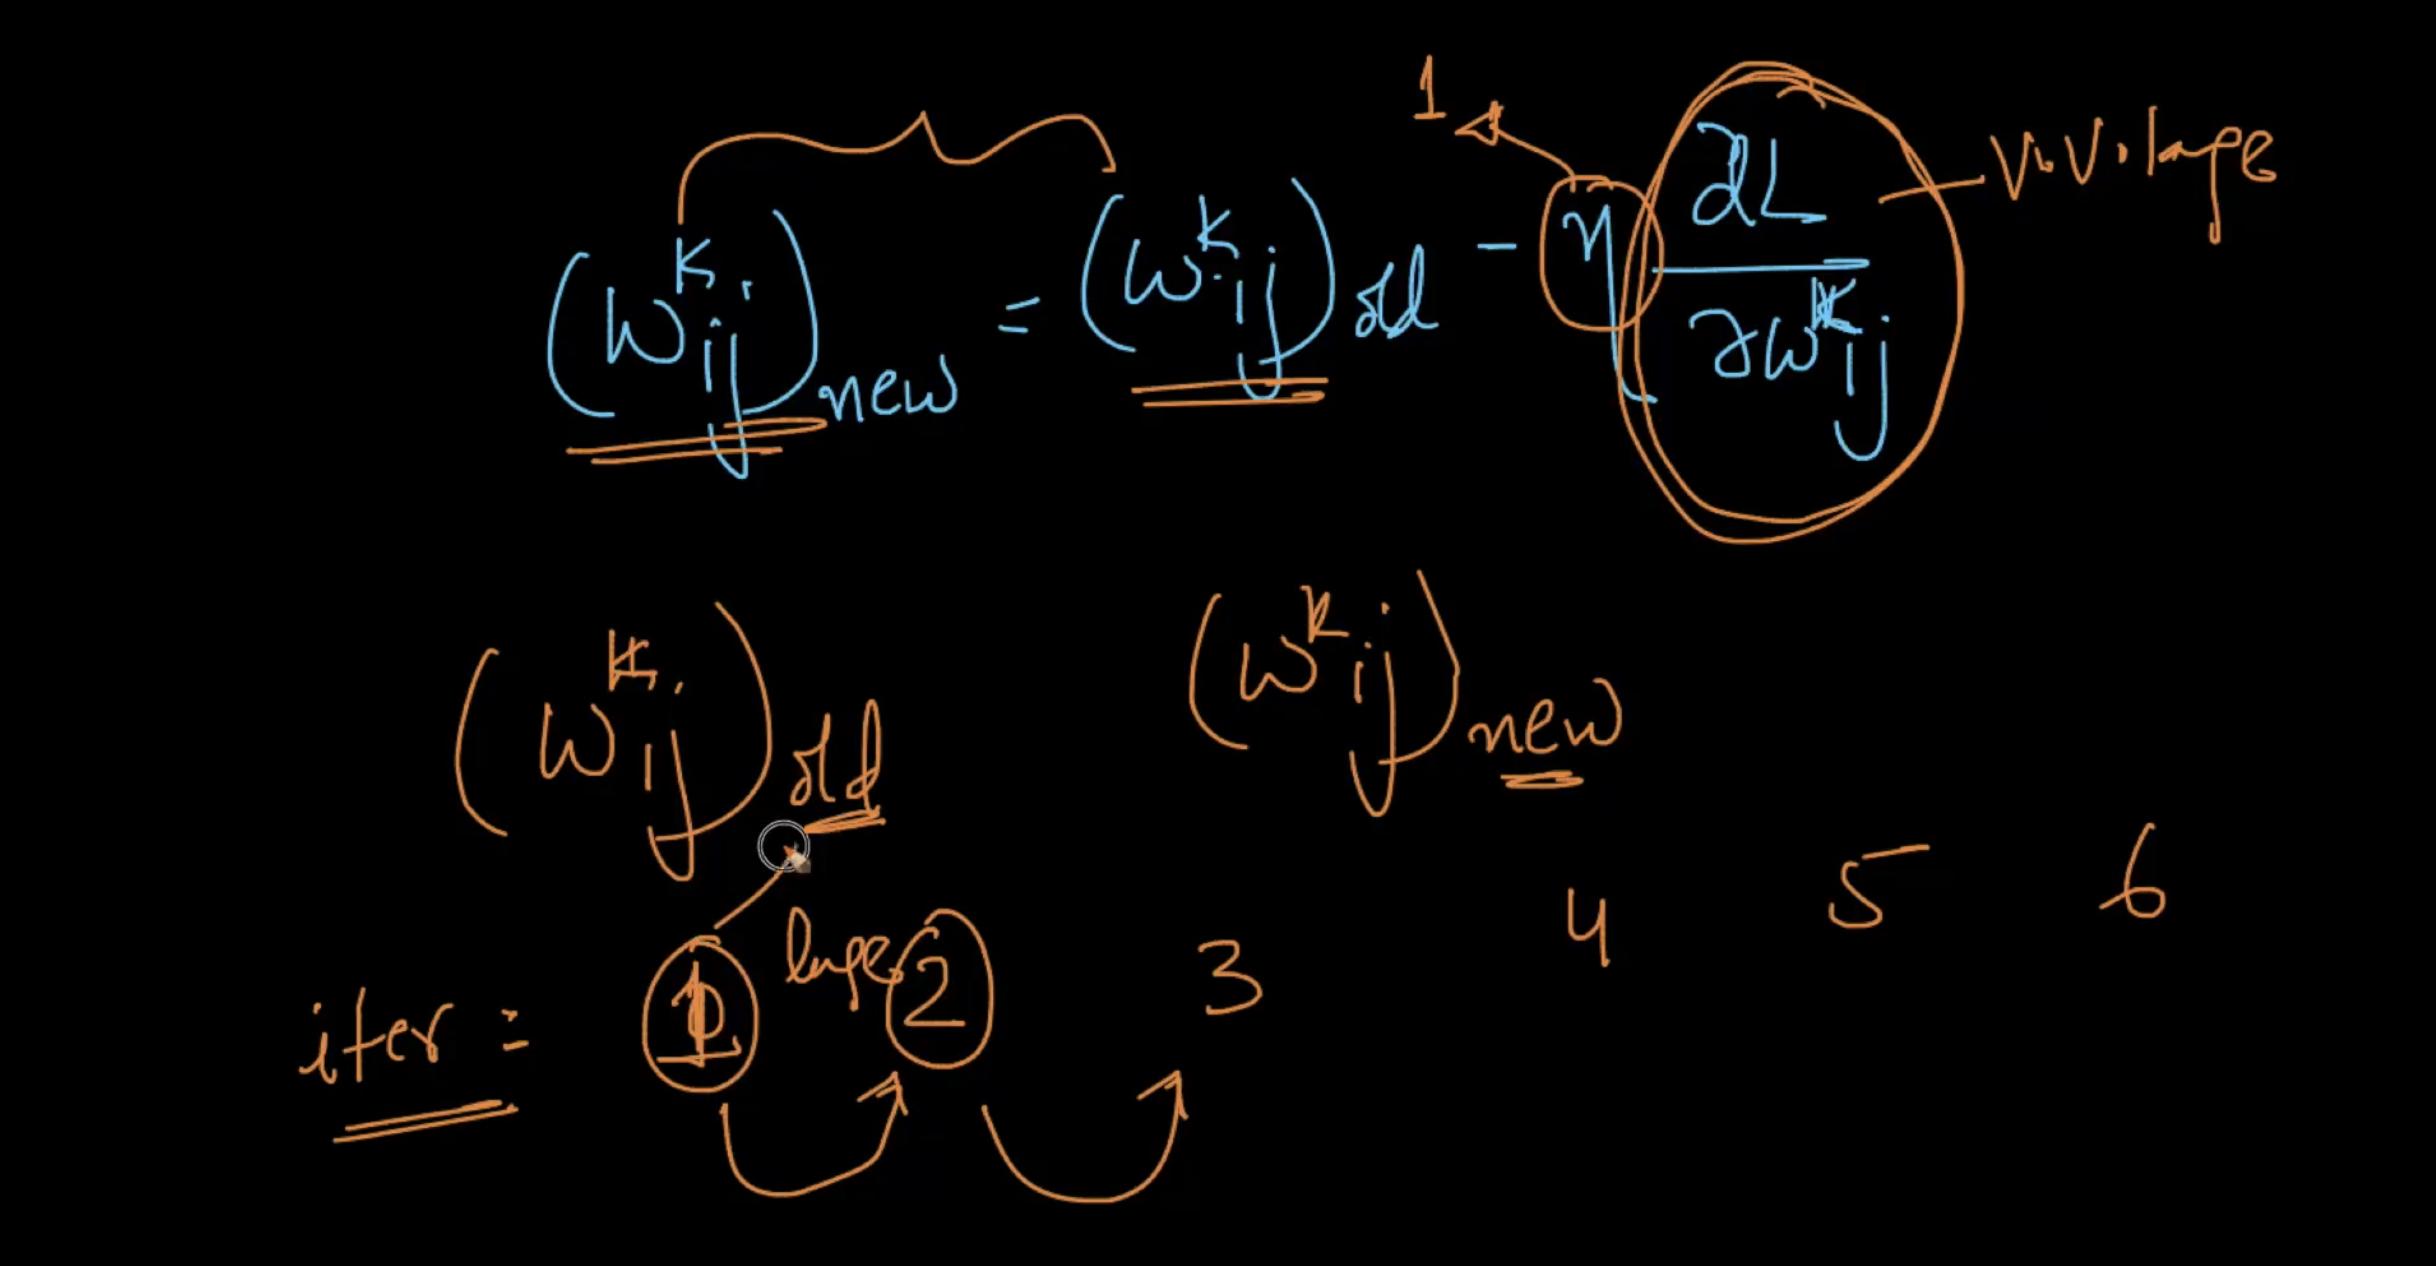 1
(W^k_ij)new = (W^k_ij)old - η ∂L/∂W^k_ij - V.V.large
(W^k_ij)old (W^k_ij)new
iter = 1 large 2 3 4 5 6